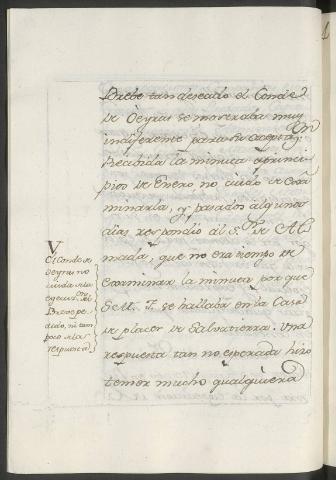 Brebe tan deseado el Conde
de Oeyras se mostraba muy
indiferente para su aceptaz.on
Recibida la minuta a princi-
pios de Enero, no cuidó de exa
minarla, y pasados algunos
dias respondió al S.r de Al
mada, que no era tiempo de
examinar la minuta por que
S.M. F. se hallaba en la Casa
de placer de Salvatierra. Una
respuesta tan no esperada hizo
temer mucho qualquiera
V
El Conde de
Oeyras no
cuida de la
del
Breve pe-
dido, ni tam
poco de la
respuesta